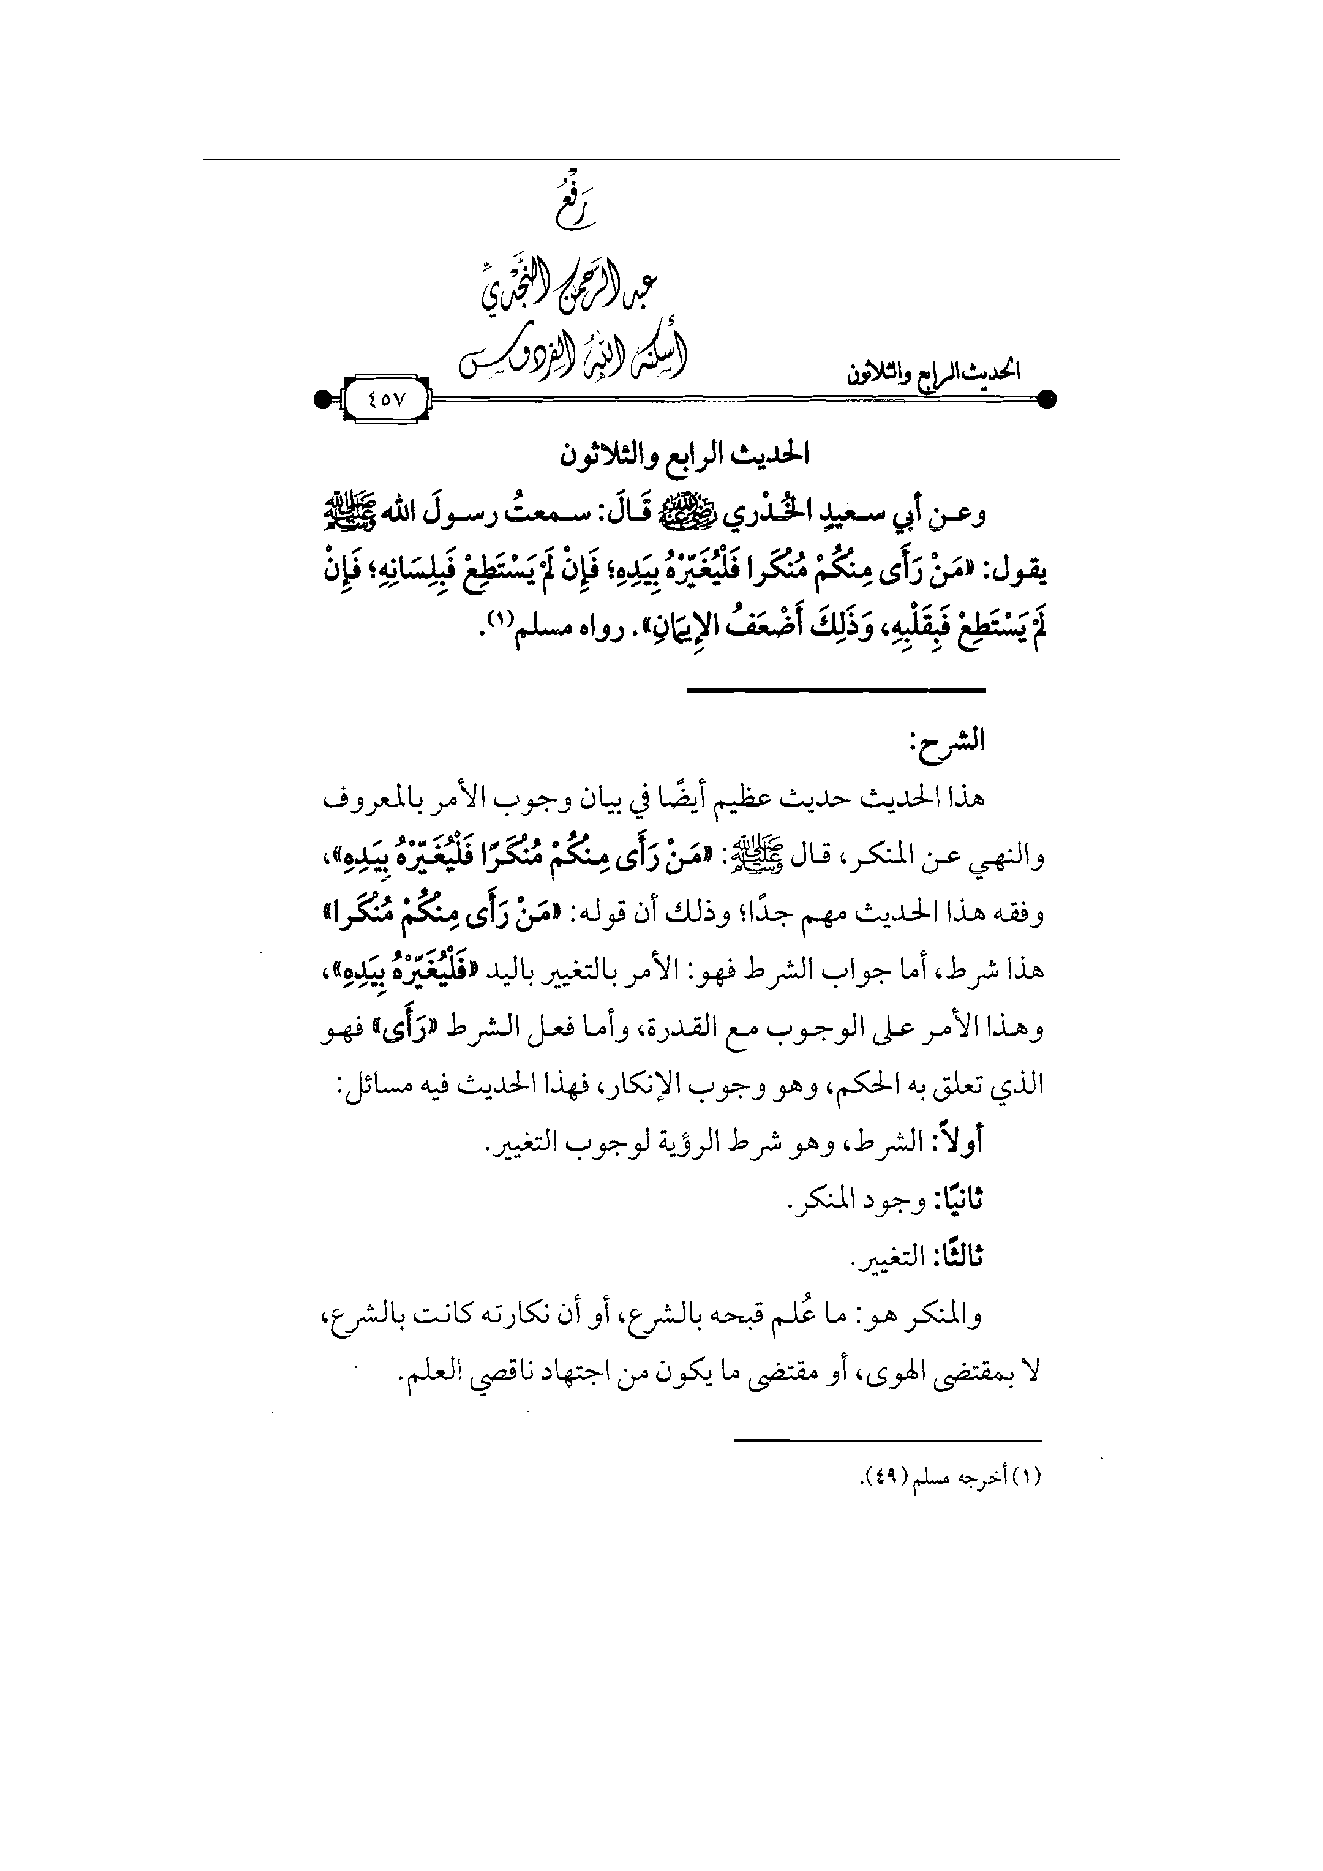 رَفْعُ
عبد الرَّحمن النَّجْديِّ
أسكنه الله الفردوس
الحديث الرابع والثلاثون
٤٥٧
الحديث الرابع والثلاثون
وعـن أبي سـعيدٍ الخُدْري ﵁ قَالَ: سـمعتُ رسـولَ الله ﷺ
يقول: «مَنْ رَأَى مِنكُمْ مُنْكَرا فَلْيُغَيِّرْهُ بِيَدِهِ؛ فَإِنْ لَمْ يَسْتَطِعْ فَبِلِسَانِهِ؛ فَإِنْ
لَمْ يَسْتَطِعْ فَبِقَلْبِهِ، وَذَلِكَ أَضْعَفُ الإِيمَانِ». رواه مسلم(١).
الشرح:
هذا الحديث حديث عظيم أيضًا في بيان وجوب الأمر بالمعروف
والنهي عن المنكر، قال ﷺ: «مَنْ رَأَى مِنكُمْ مُنْكَرًا فَلْيُغَيِّرْهُ بِيَدِهِ»،
وفقه هذا الحديث مهم جدًا؛ وذلك أن قوله: «مَنْ رَأَى مِنكُمْ مُنْكَرا»
هذا شرط، أما جواب الشرط فهو: الأمر بالتغيير باليد «فَلْيُغَيِّرْهُ بِيَدِهِ»،
وهذا الأمر على الوجوب مع القدرة، وأما فعل الشرط «رَأَى» فهو
الذي تعلق به الحكم، وهو وجوب الإنكار، فهذا الحديث فيه مسائل:
أولاً: الشرط، وهو شرط الرؤية لوجوب التغيير.
ثانيًا: وجود المنكر.
ثالثًا: التغيير.
والمنكر هو: ما عُلم قبحه بالشرع، أو أن نكارته كانت بالشرع،
لا بمقتضى الهوى، أو مقتضى ما يكون من اجتهاد ناقصي العلم.
(١) أخرجه مسلم (٤٩).